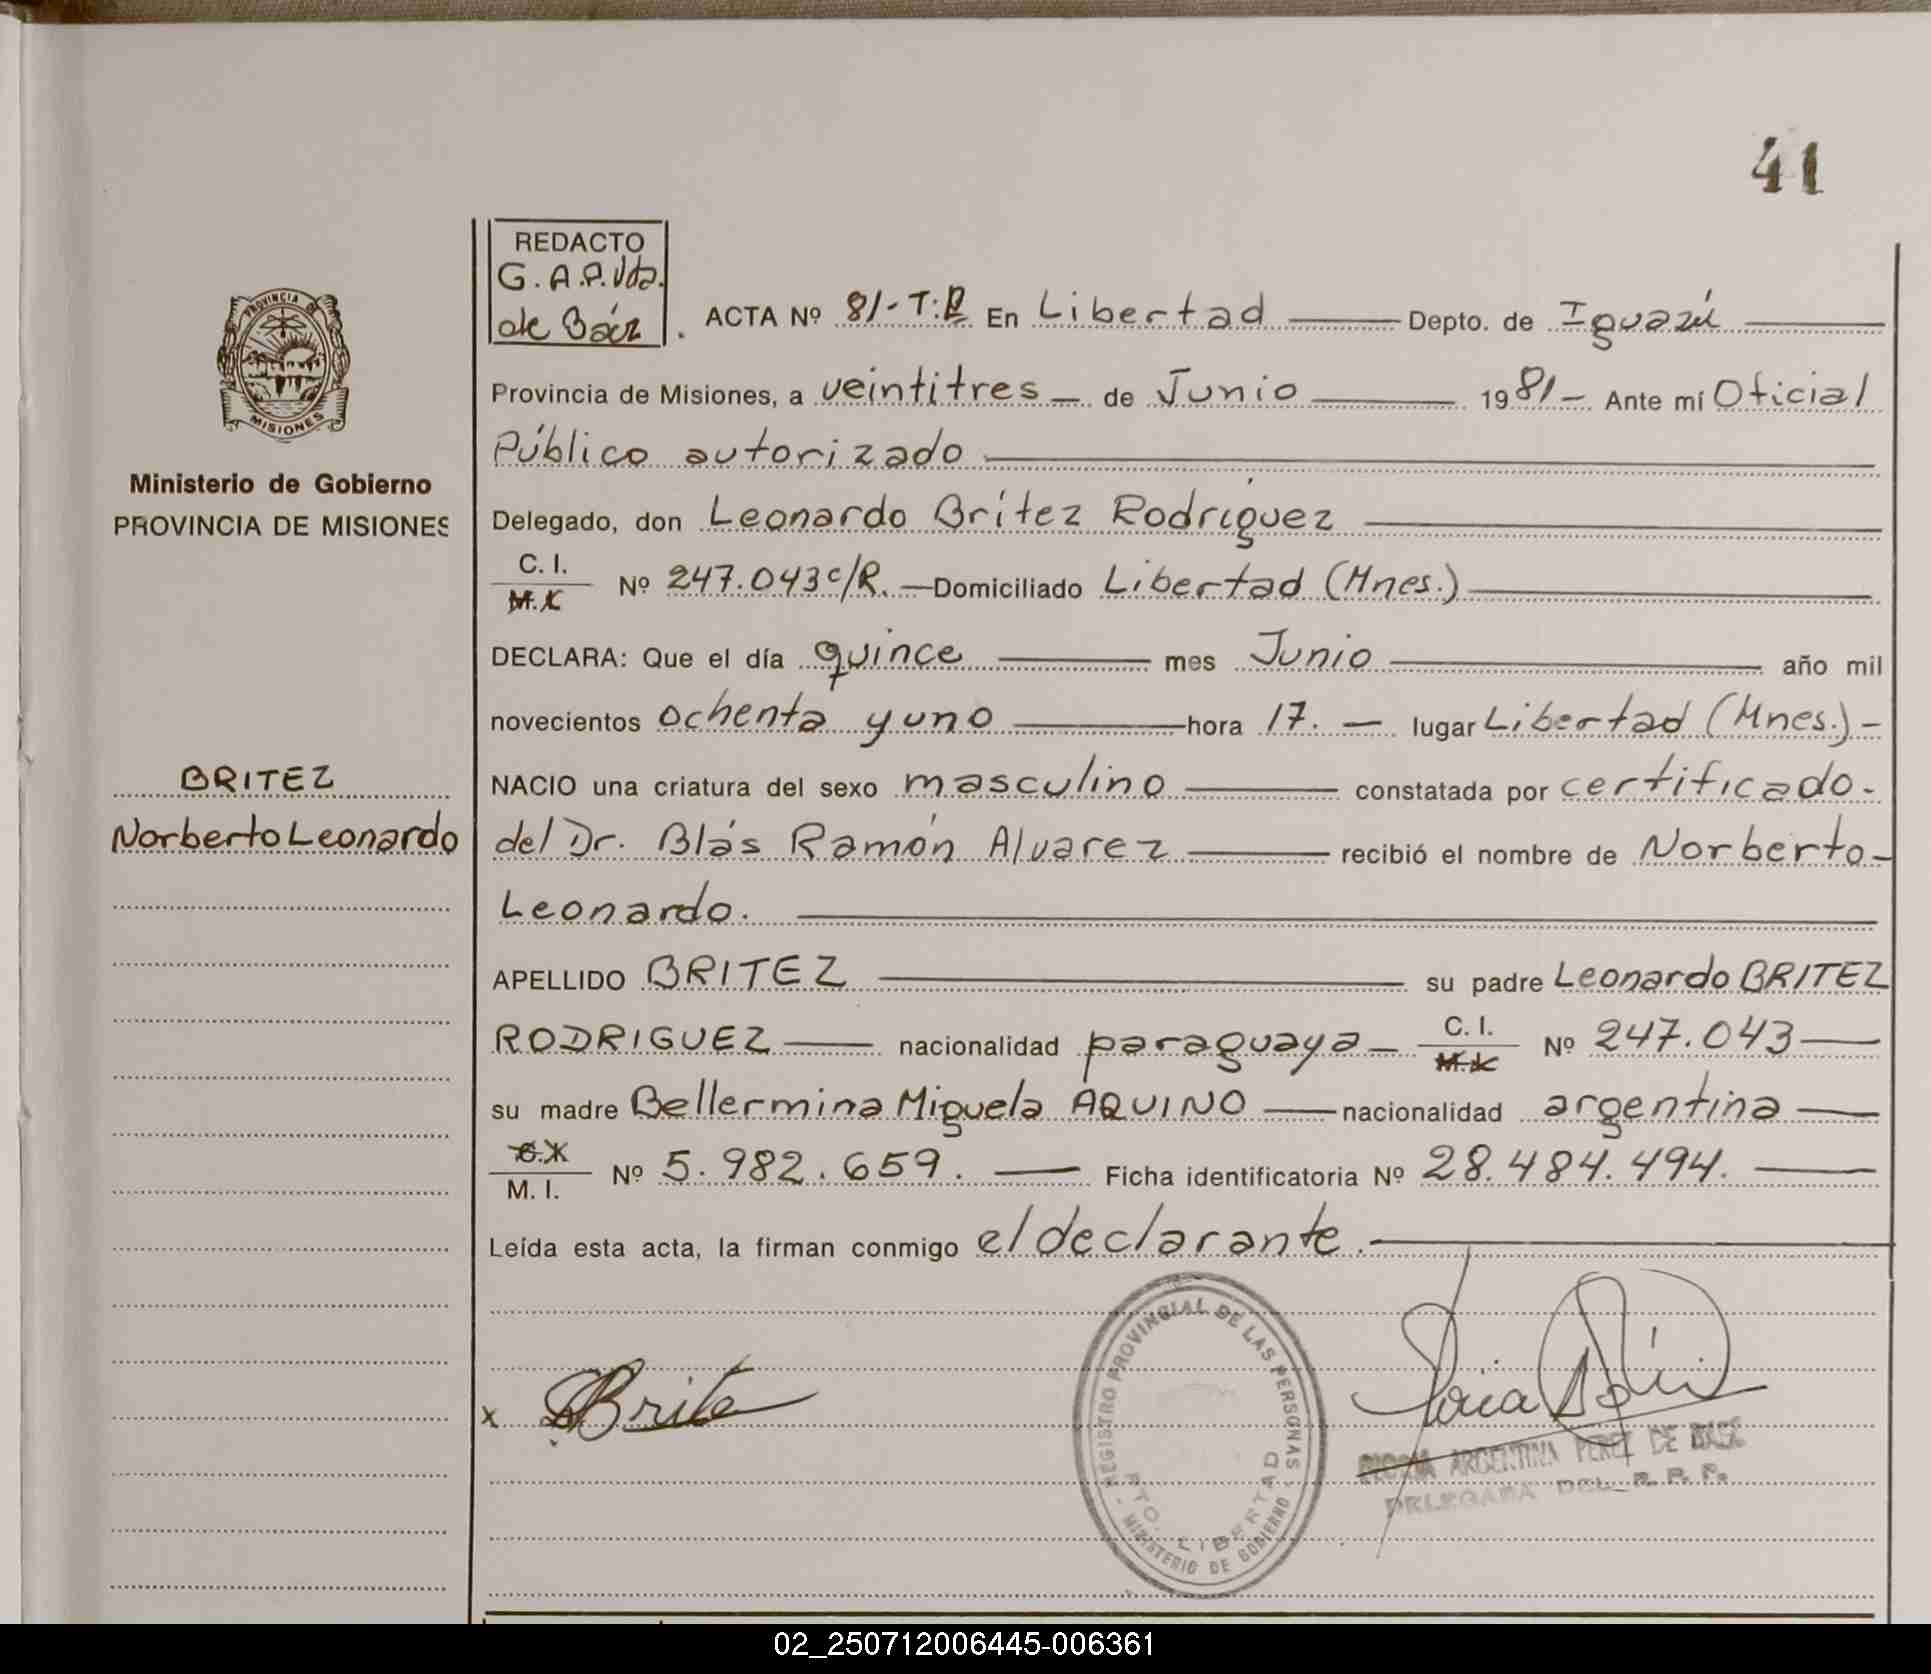 41
REDACTO
G. A. P. Vda.
de Báez
PROVINCIA DE
MISIONES
Ministerio de Gobierno
PROVINCIA DE MISIONES
BRITEZ
Norberto Leonardo
ACTA Nº 81-T: En Libertad Depto. de Iguazú
Provincia de Misiones, a veintitres de Junio 1981- Ante mí Oficial
Público autorizado
Delegado, don Leonardo Britez Rodríguez
C. I.
M. I. Nº 247.043 c/R. Domiciliado Libertad (Mnes.)
DECLARA: Que el día quince mes Junio año mil
novecientos ochenta y uno hora 17. lugar Libertad (Mnes.)
NACIO una criatura del sexo masculino constatada por certificado
del Dr. Blás Ramón Alvarez recibió el nombre de Norberto
Leonardo.
APELLIDO BRITEZ su padre Leonardo BRITEZ
RODRIGUEZ nacionalidad paraguaya C. I. M. I. Nº 247.043
su madre Bellermina Miguela AQUINO nacionalidad argentina
C. I.
M. I. Nº 5.982.659. Ficha identificatoria Nº 28.484.494.
Leída esta acta, la firman conmigo el declarante.
x Brite
REGISTRO PROVINCIAL DE LAS PERSONAS
MINISTERIO DE GOBIERNO
PTO. LIBERTAD
ARGENTINA PEREZ DE BAEZ
DELEGADA DEL R. P. P.
02_250712006445-006361